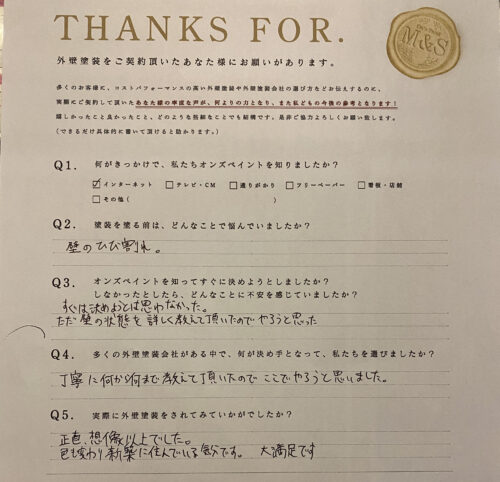 THANKS FOR.
M&S
外壁塗装をご契約頂いたあなた様にお願いがあります。
多くのお客様に、コストパフォーマンスの高い外壁塗装や外壁塗装会社の選び方などお伝えするのに、
実際にご契約して頂いたあなた様の率直な声が、何よりの力となり、また私どもの今後の参考となります!
嬉しかったこと良かったこと、どのような些細なことでも結構です。是非ご協力よろしくお願い致します。
(できるだけ具体的に書いて頂けると助かります。)
Q1. 何がきっかけで、私たちオンズペイントを知りましたか?
☑インターネット □テレビ・CM □通りがかり □フリーペーパー □看板・店舗
□その他( )
Q2. 塗装を塗る前は、どんなことで悩んでいましたか?
壁のひび割れ。
Q3. オンズペイントを知ってすぐに決めようとしましたか?
しなかったとしたら、どんなことに不安を感じていましたか?
すぐは決めようとは思わなかった。
ただ壁の状態を詳しく教えて頂いたのでやろうと思った
Q4. 多くの外壁塗装会社がある中で、何が決め手となって、私たちを選びましたか?
丁寧に何から何まで教えて頂いたので ここでやろうと思いました。
Q5. 実際に外壁塗装をされてみていかがでしたか?
正直、想像以上でした。
色も変わり新築に住んでいる気分です。 大満足です